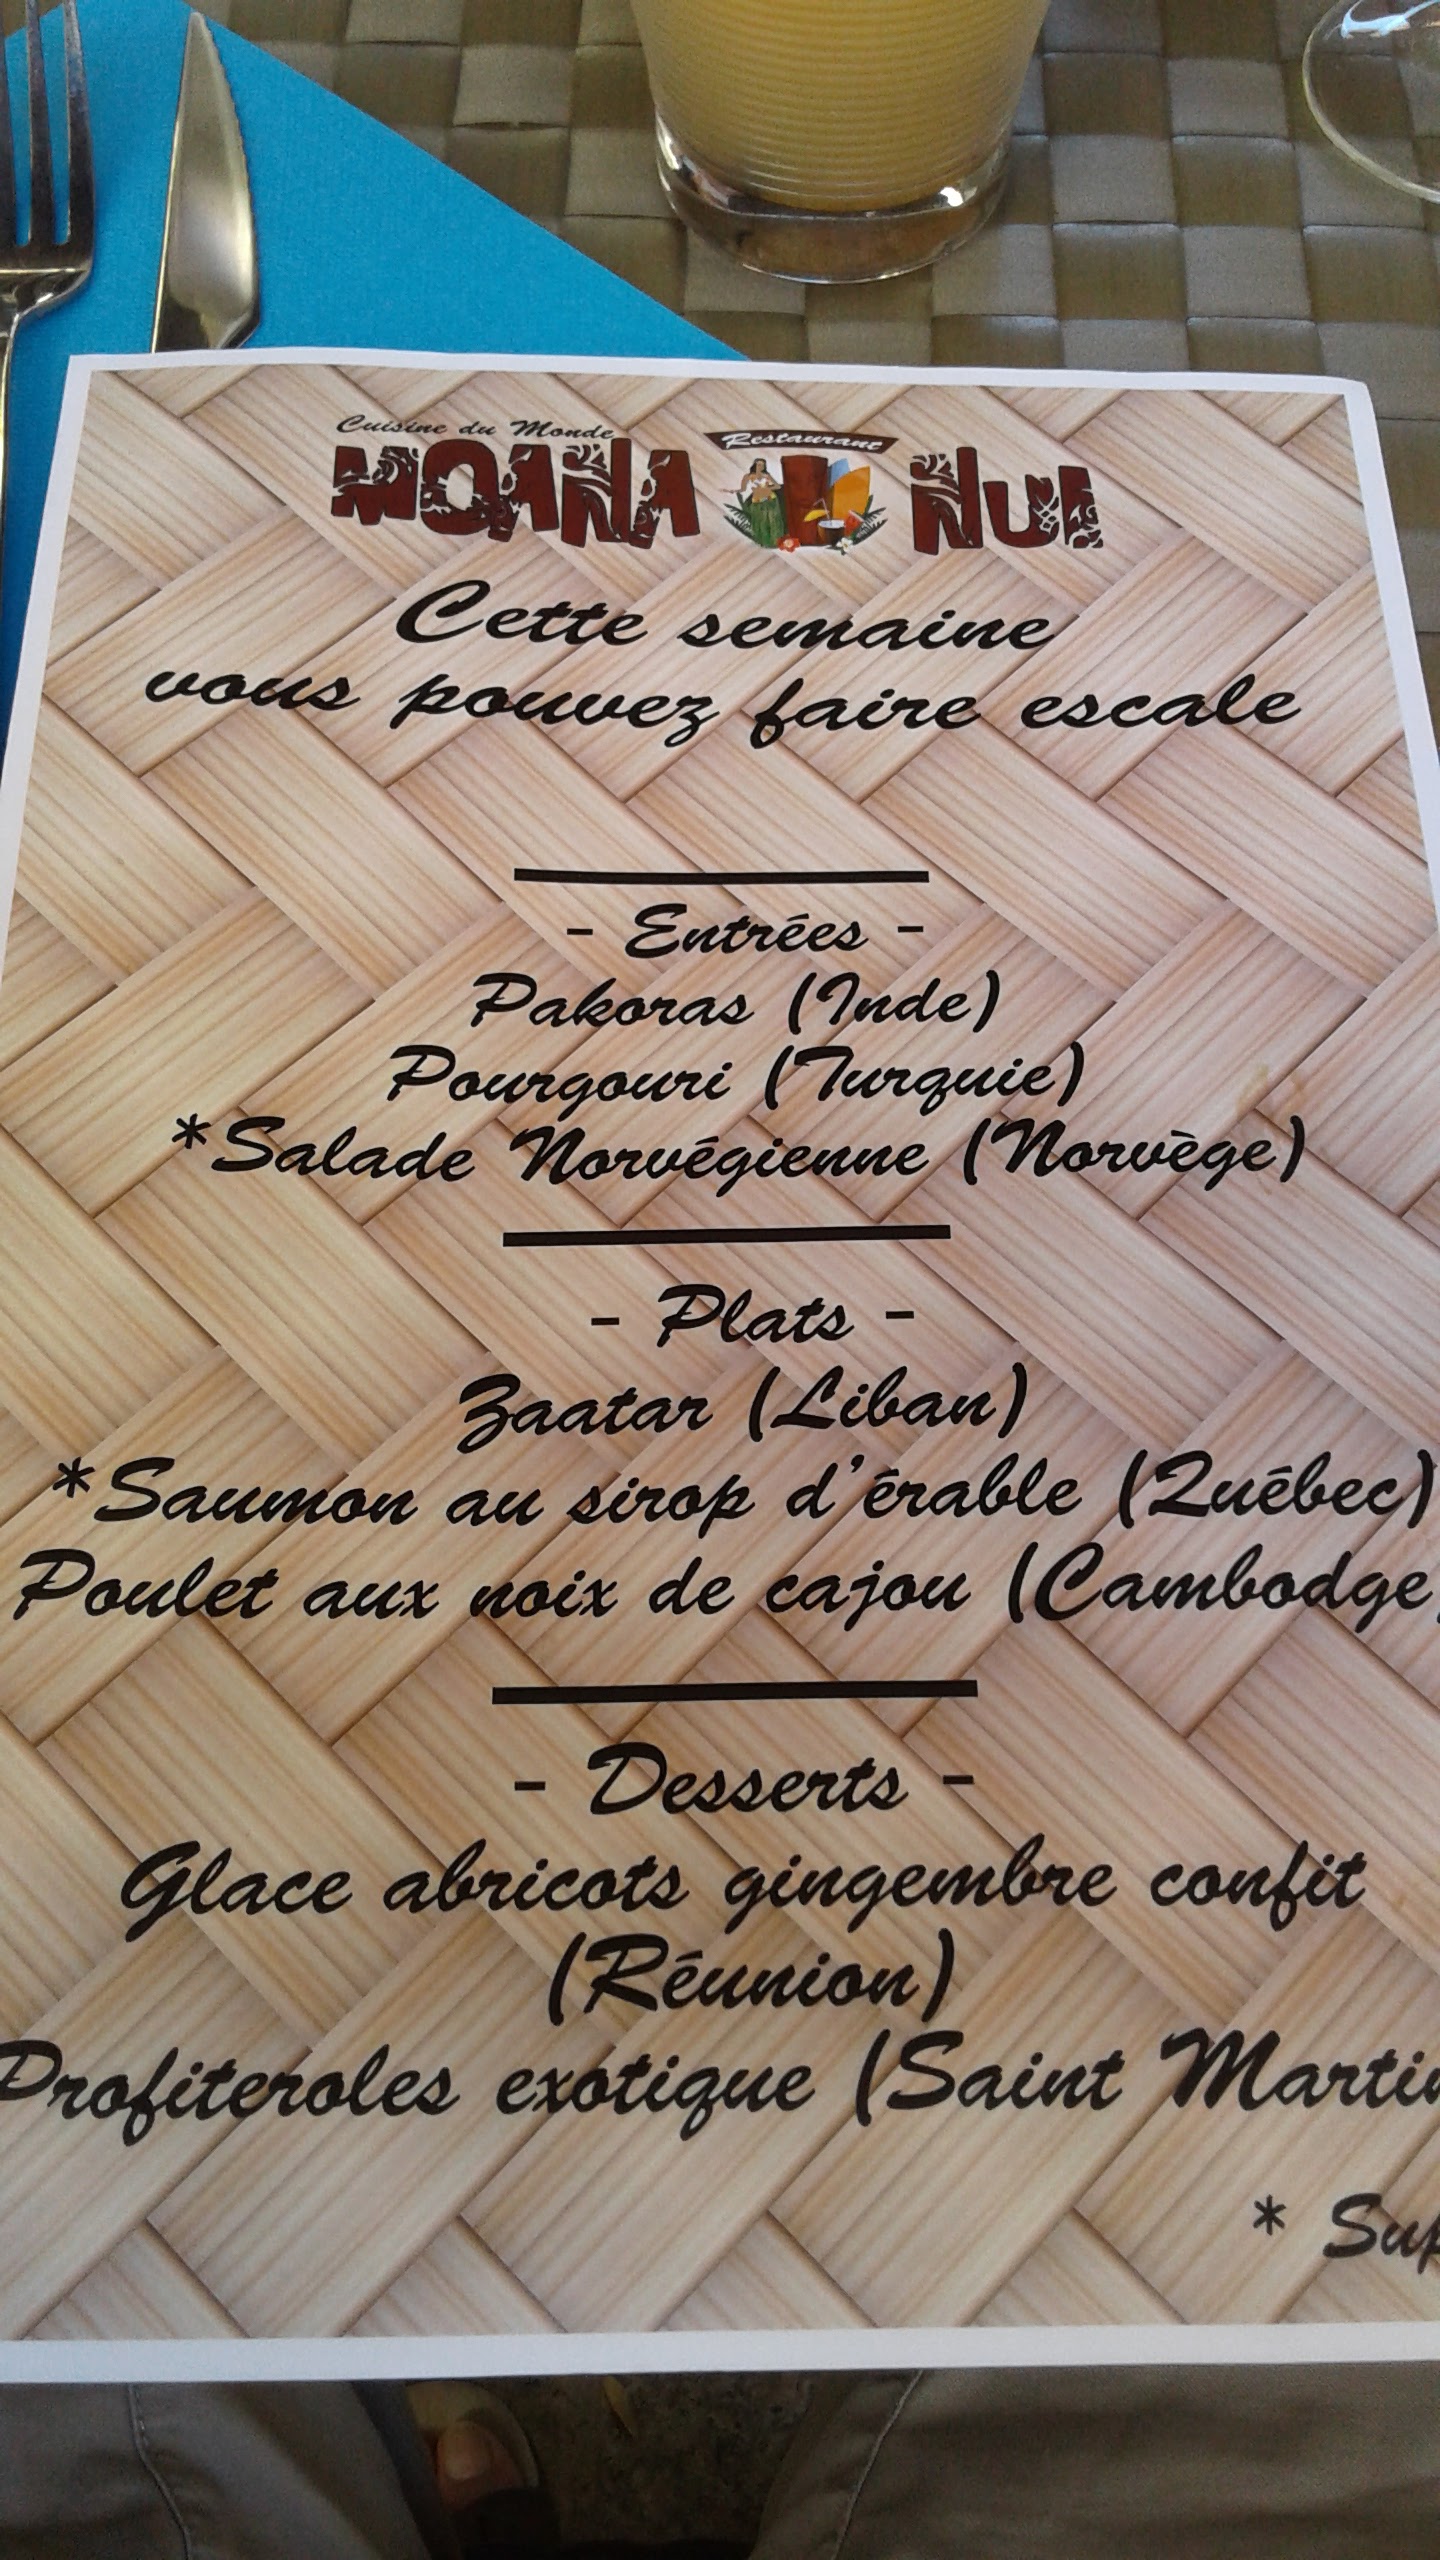 Cuisine du Monde
MOANA Restaurant NUI
Cette semaine
vous pouvez faire escale
- Entrées -
Pakoras (Inde)
Pourgouri (Turquie)
*Salade Norvégienne (Norvège)
- Plats -
Zaatar (Liban)
*Saumon au sirop d'érable (Québec)
Poulet aux noix de cajou (Cambodge)
- Desserts -
Glace abricots gingembre confit
(Réunion)
Profiteroles exotique (Saint Martin
*